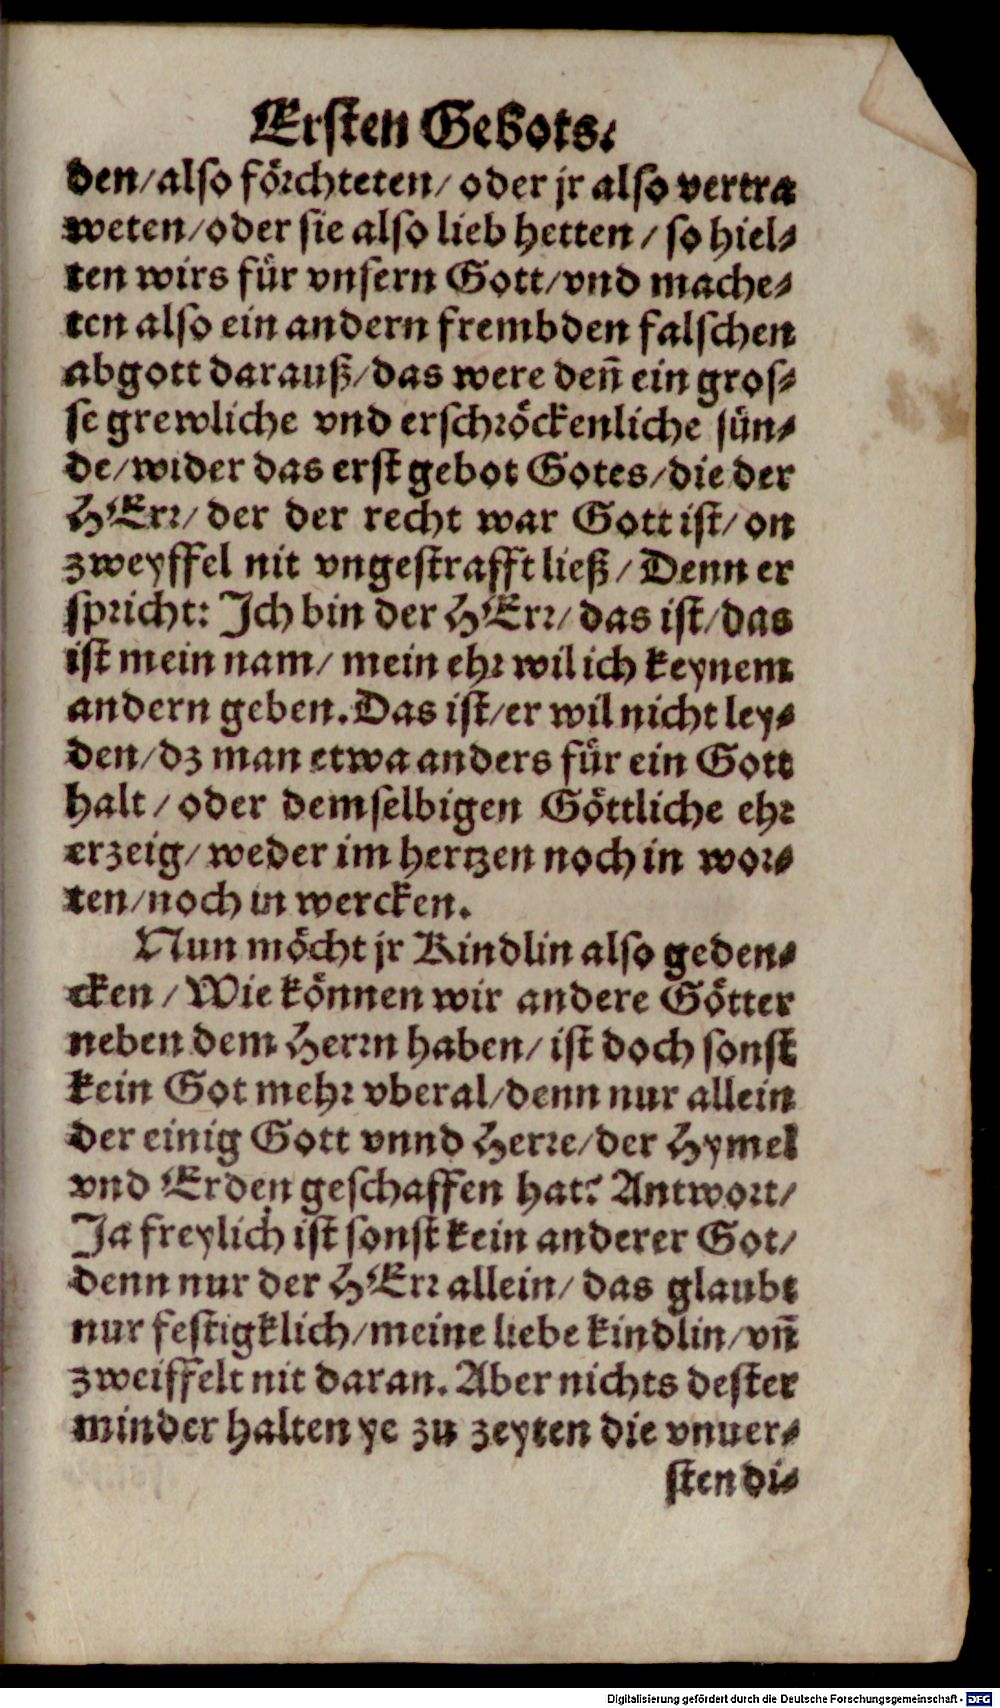 Ersten Gebots.
den/also förchteten/ oder jr also vertra
weten/oder sie also lieb hetten / so hiel-
ten wirs für vnsern Gott/vnd mache-
ten also ein andern frembden falschen
abgott darauß/das were deñ ein gros-
se grewliche vnd erschröckenliche sün-
de/wider das erst gebot Gotes/die der
HErr/ der der recht war Gott ist/ on
zweyffel nit vngestrafft ließ/ Denn er
spricht: Ich bin der HErr/ das ist/das
ist mein nam/ mein ehr wil ich keynem
andern geben. Das ist/er wil nicht ley-
den/dz man etwa anders für ein Gott
halt / oder demselbigen Göttliche ehr
erzeig/ weder im hertzen noch in wor-
ten/noch in wercken.
Nun möcht jr Kindlin also geden-
cken / Wie können wir andere Götter
neben dem Herrn haben/ ist doch sonst
kein Got mehr vberal/denn nur allein
der einig Gott vnnd Herre/der Hymel
vnd Erden geschaffen hat? Antwort/
Ja freylich ist sonst kein anderer Got/
denn nur der HErr allein/ das glaubt
nur festigklich/meine liebe kindlin/vñ
zweiffelt nit daran. Aber nichts dester
minder halten ye zu zeyten die vnuer-
sten di-
Digitalisierung gefördert durch die Deutsche Forschungsgemeinschaft - DFG